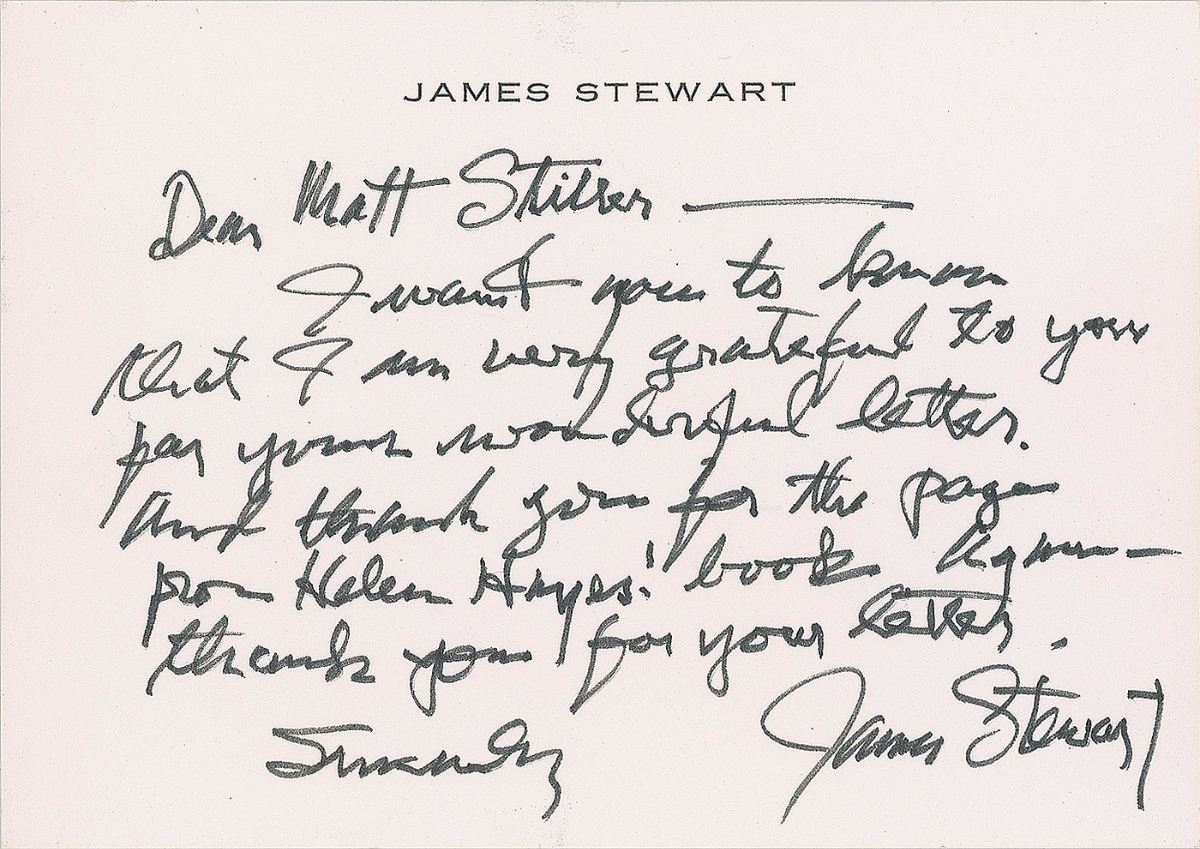 JAMES STEWART
Dear Matt
I want you to know
that I am very grateful to you
for your wonderful letter.
And thank you for the page
from Helen Hayes' book Again—
thank you for your letter.
Sincerely
James Stewart